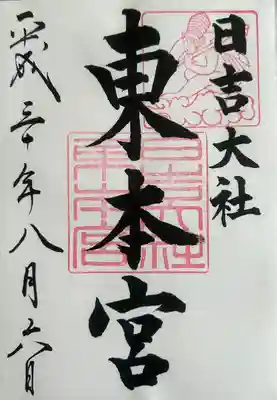 日吉大社
東本宮
平成三十年八月六日